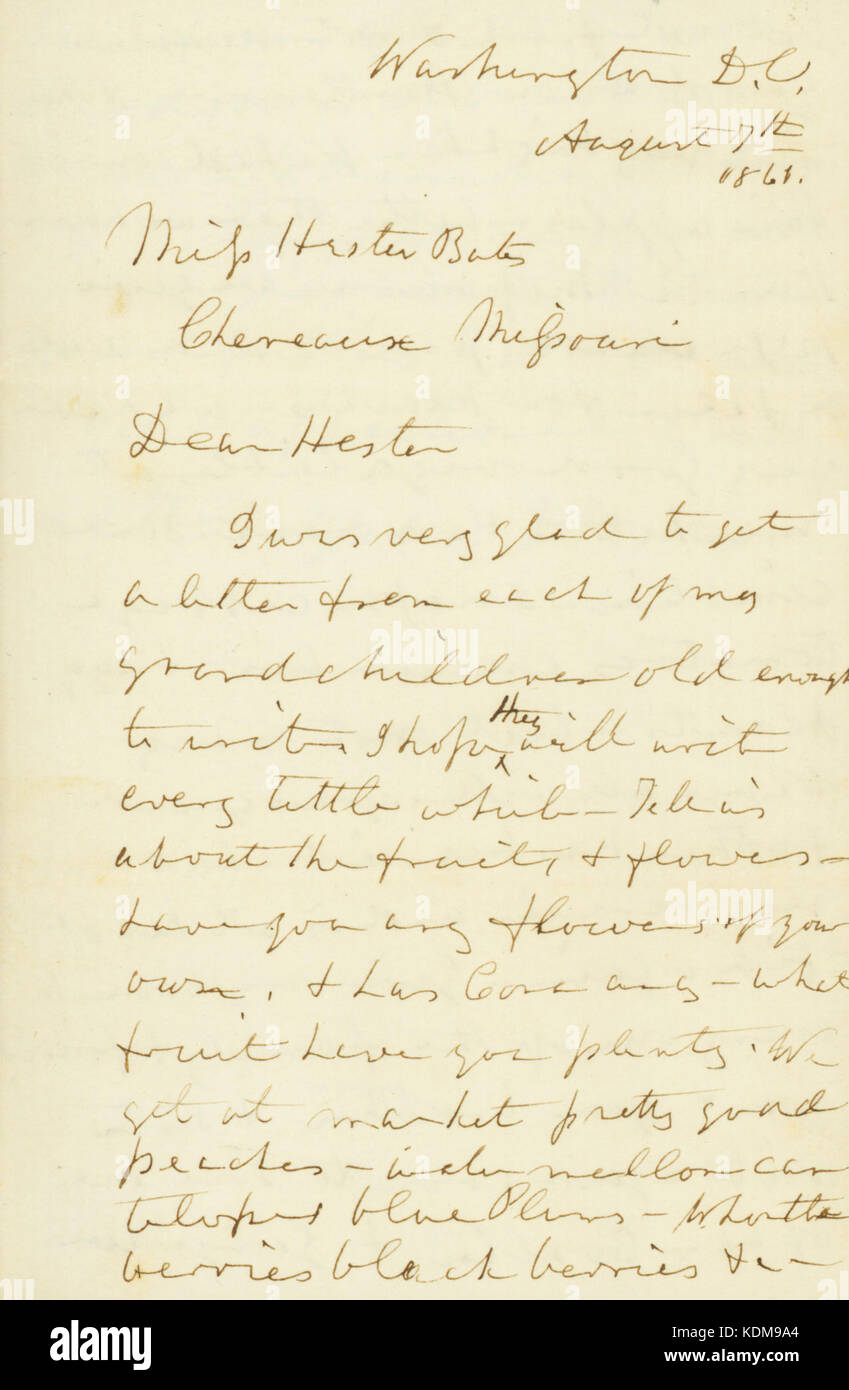 Washington D.C.
August 7th
1861.
Miss Hester Bates
Chereaux Missouri
Dear Hester
I was very glad to get
a letter from each of my
grandchildren old enough
to write. I hope they will write
every little while - Tell us
about the fruit, & flowers -
have you any flowers of your
own, & has Cora any - what
fruit have you plenty. We
get at market pretty good
peaches - water mellon can
telopes blue Plums - Whortle
berries black berries &c -
alamy
Image ID: KDM9A4
www.alamy.com